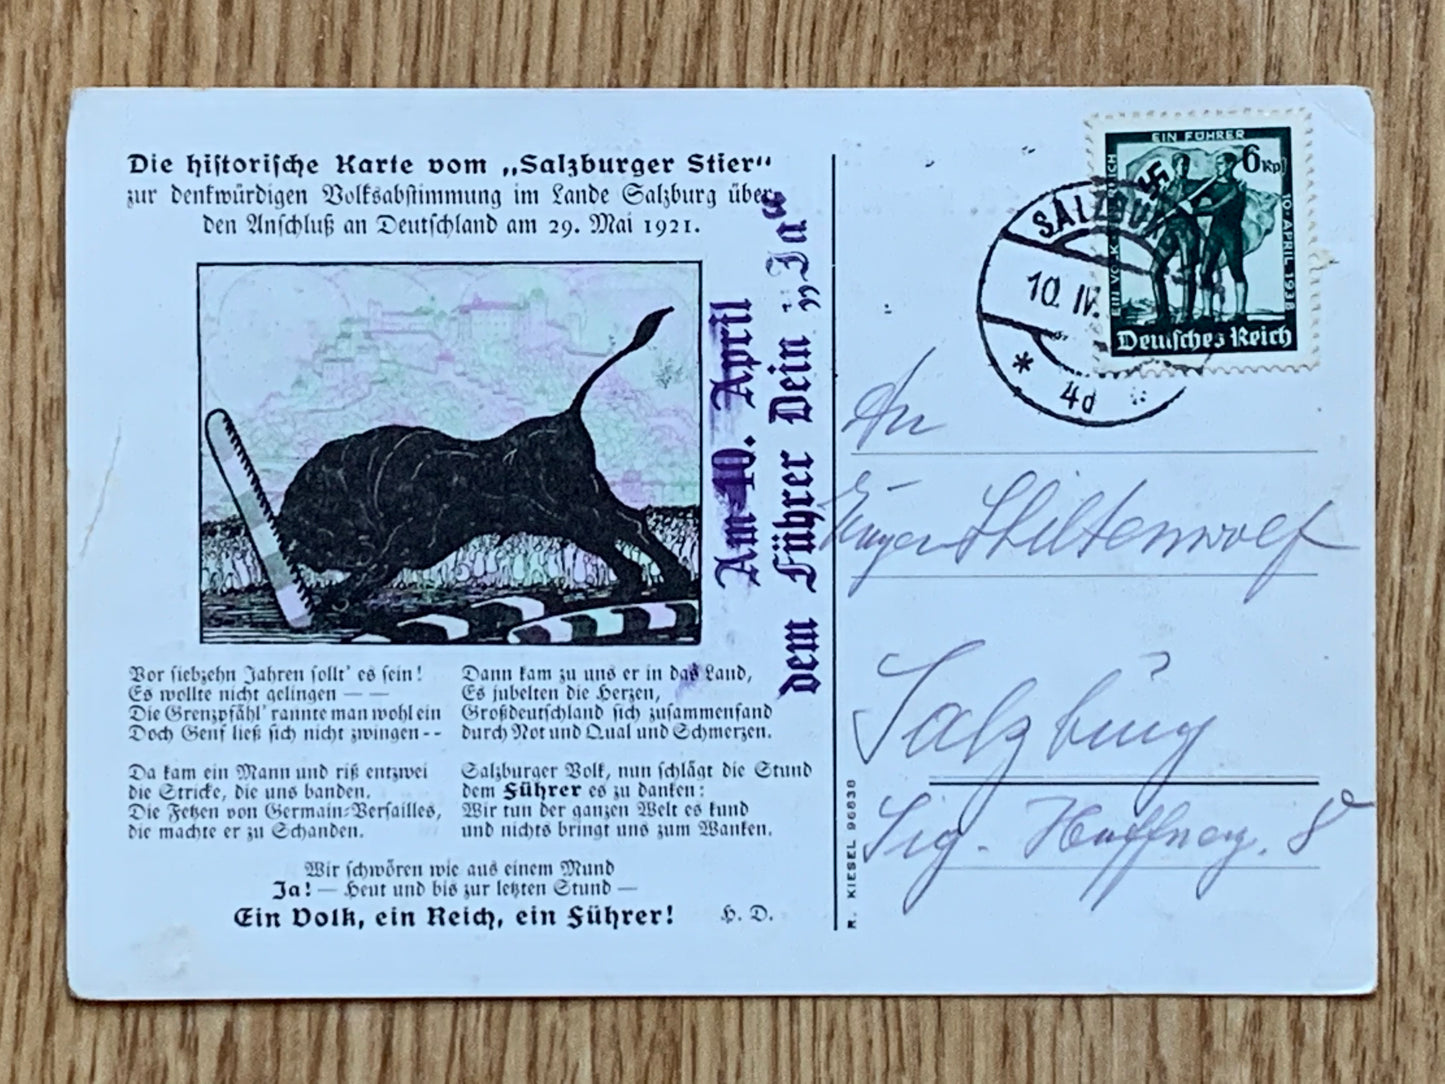 Die historische Karte vom „Salzburger Stier“
zur denkwürdigen Volksabstimmung im Lande Salzburg über
den Anschluß an Deutschland am 29. Mai 1921.
Am 10. April
dem Führer Dein „Ja“
Vor siebzehn Jahren sollt' es sein!
Es wollte nicht gelingen — —
Die Grenzpfähl' rannte man wohl ein
Doch Genf ließ sich nicht zwingen - -
Da kam ein Mann und riß entzwei
die Stricke, die uns banden.
Die Fetzen von Germain-Versailles,
die machte er zu Schanden.
Dann kam zu uns er in das Land,
Es jubelten die Herzen,
Großdeutschland sich zusammenfand
durch Not und Qual und Schmerzen.
Salzburger Volk, nun schlägt die Stund
dem Führer es zu danken:
Wir tun der ganzen Welt es kund
und nichts bringt uns zum Wanken.
Wir schwören wie aus einem Mund
Ja! — Heut und bis zur letzten Stund —
Ein Volk, ein Reich, ein Führer!
H. D.
R. KIESEL 96838
EIN FÜHRER
6 Rpf
10. APRIL 1938
Deutsches Reich
SALZBURG
10. IV.
* 4d
An
Salzburg
Sig. Haffnerg. 8